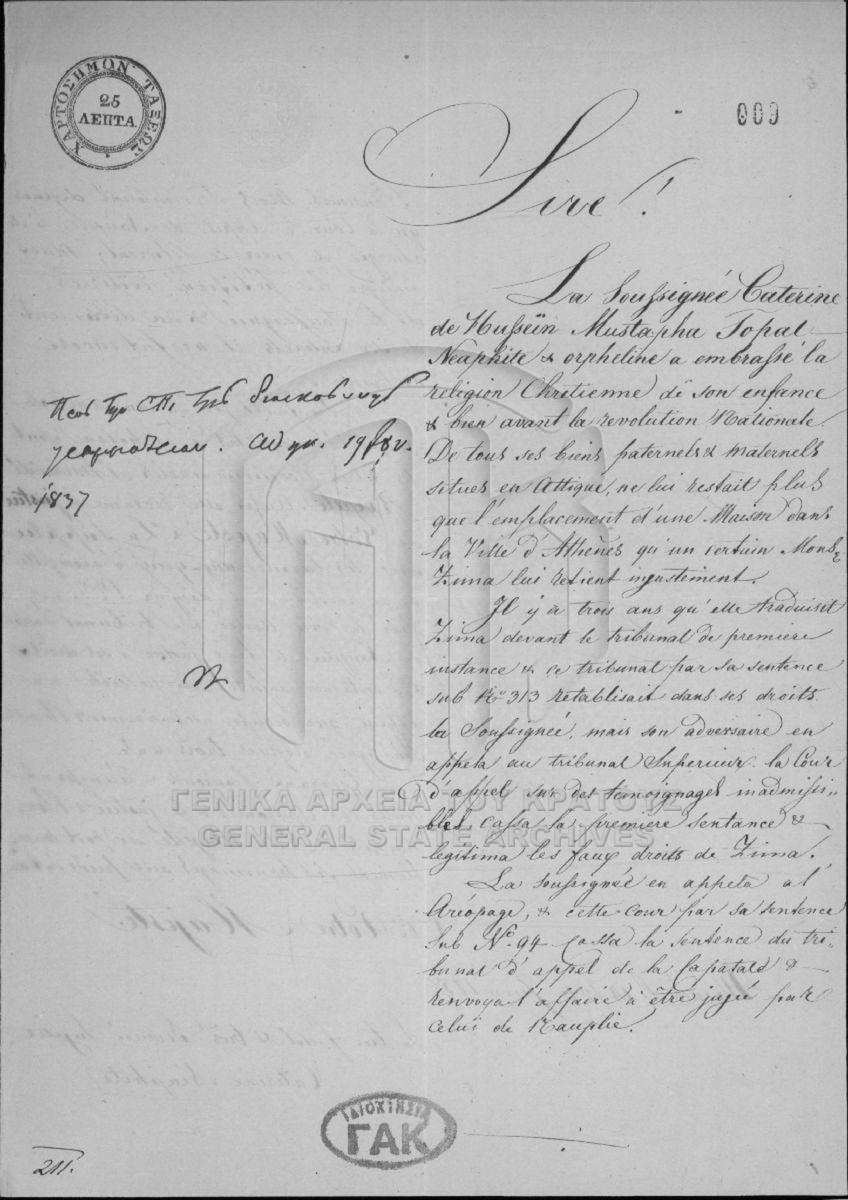 ΧΑΡΤΟΣΗΜΟΝ ΤΑΞΕΩΣ
25
ΛΕΠΤΑ
009
Sire!
La Soussignée Caterine
de Husseïn Mustapha Topal
Néaphite & orpheline a embrassé la
religion Chretienne dè son enfance
& bien avant la revolution Nationale.
De tous ses biens paternels & maternels
situés en Attique, ne lui restait plus
que l'emplacement d'une Maison dans
la Ville d'Athènes qu'un certain Mons.
Zima lui retient injustement.
Il y a trois ans qu'elle traduisit
Zima devant le tribunal de premiere
instance & ce tribunal par sa sentence
sub No 313 retablisait dans ses droits
la Soussignée, mais son adversaire en
appela au tribunal Superieur. la Cour
d'appel sur des temoignages inadmissi-
bles, cassa la premiere sentance &
legitima les faux droits de Zima.
La soussignée en appela a l'
Aréopage, & cette cour par sa sentence
sub No. 94 cassa la sentence du tri-
bunal d'appel de la Capatale &
renvoya l'affaire à être jugée par
celui de Nauplie.
Πρὸς τὴν ἐπὶ τῆς
19
1837
ΓΕΝΙΚΑ ΑΡΧΕΙΑ ΤΟΥ ΚΡΑΤΟΥΣ
GENERAL STATE ARCHIVES
ΙΔΙΟΚΤΗΣΙΑ
ΓΑΚ
211.